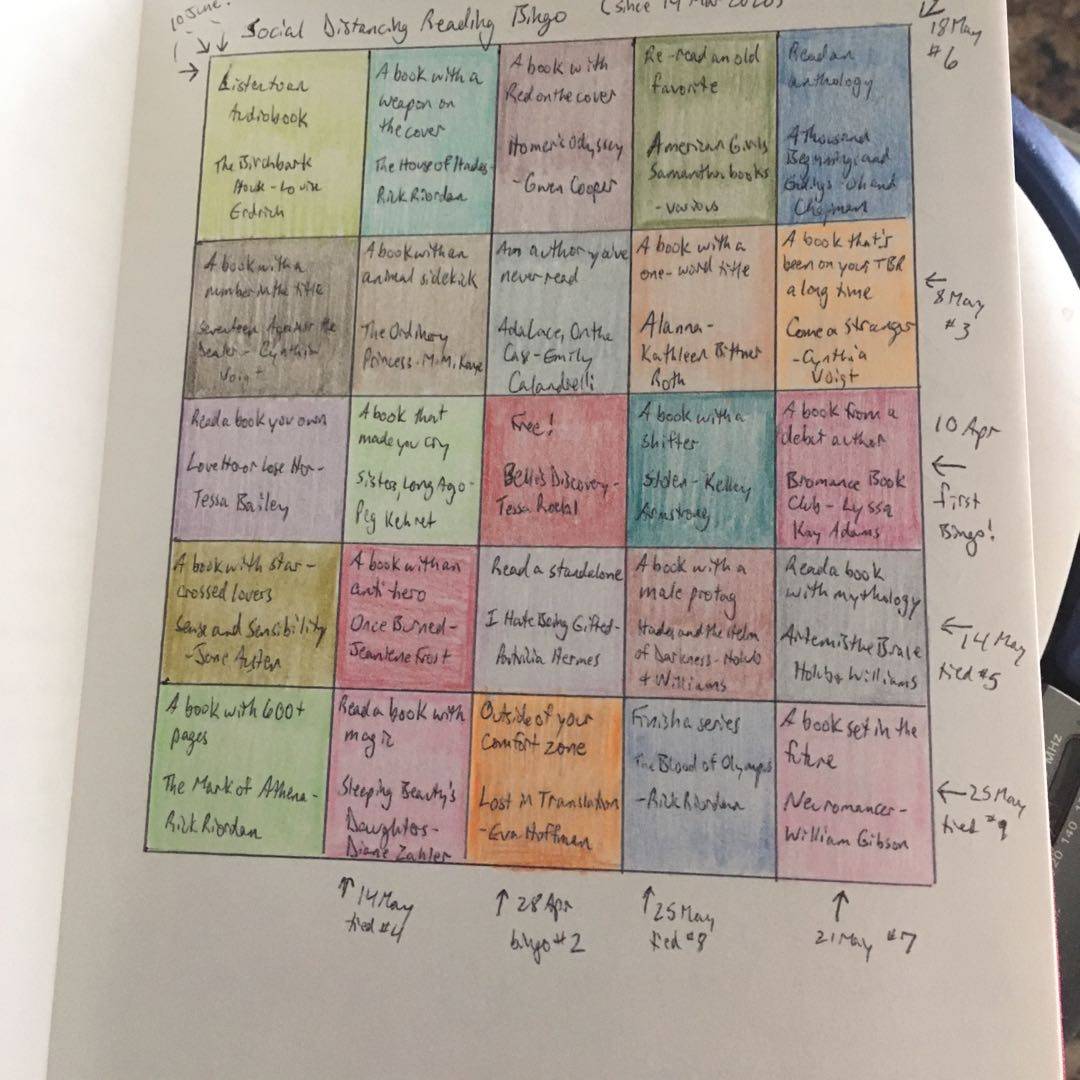 10 June!
Social Distancing Reading Bingo (since 14 Mar 2020)
18 May
#6
Listen to an
Audiobook
The Birchbark
House - Louise
Erdrich
A book with a
weapon on
the cover
The House of Hades -
Rick Riordan
A book with
Red on the cover
Homer's Odyssey
- Gwen Cooper
Re-read an old
favorite
American Girls
Samantha books
- various
Read an
anthology
A Thousand
Beginnings and
Endings - Oh and
Chapman
A book with a
number in the title
Seventeen Against the
Dealer - Cynthia
Voigt
A book with an
animal sidekick
The Ordinary
Princess - M.M. Kaye
An author you've
never read
Ada Lace, On the
Case - Emily
Calandrelli
A book with a
one-word title
Alanna -
Kathleen Bittner
Roth
A book that's
been on your TBR
a long time
Come a Stranger
- Cynthia
Voigt
8 May
#3
Read a book you own
Love Her or Lose Her -
Tessa Bailey
A book that
made you cry
Sisters, Long Ago -
Peg Kehret
Free!
Belle's Discovery -
Tessa
A book with a
shifter
Stolen - Kelley
Armstrong
A book from a
debut author
Bromance Book
Club - Lyssa
Kay Adams
10 Apr
first
Bingo!
A book with star-
crossed lovers
Sense and Sensibility
- Jane Austen
A book with an
anti hero
Once Burned -
Jeaniene Frost
Read a standalone
I Hate Being Gifted -
Hermes
A book with a
male protag
Hades and the Helm
of Darkness - Holub
+ Williams
Read a book
with mythology
Artemis the Brave
Holub + Williams
14 May
tied #5
A book with 600+
pages
The Mark of Athena -
Rick Riordan
Read a book with
magic
Sleeping Beauty's
Daughters -
Diane Zahler
Outside of your
comfort zone
Lost in Translation
- Eva Hoffman
Finish a series
The Blood of Olympus
- Rick Riordan
A book set in the
future
Neuromancer -
William Gibson
25 May
tied #9
14 May
tied #4
28 Apr
bingo #2
25 May
tied #8
21 May #7
MHz
140